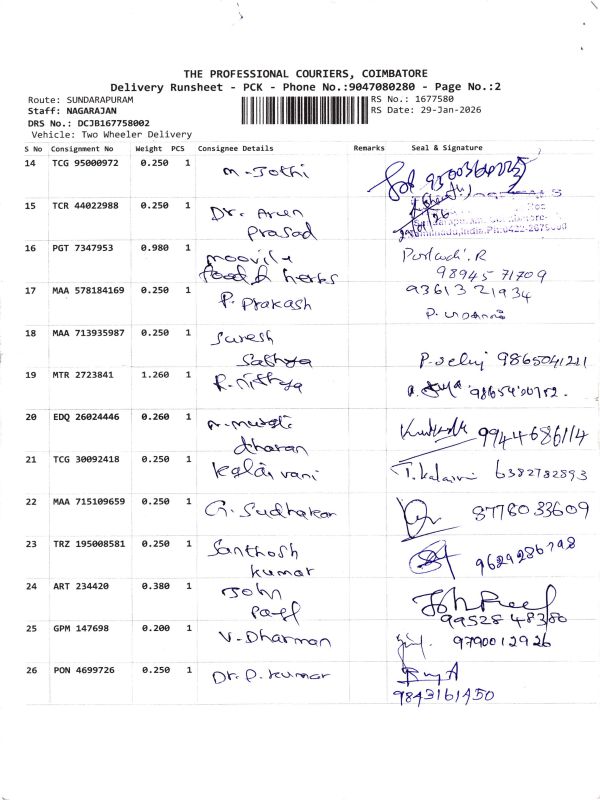 THE PROFESSIONAL COURIERS, COIMBATORE
Delivery Runsheet - PCK - Phone No.:9047080280 - Page No.:2
Route: SUNDARAPURAM RS No.: 1677580
Staff: NAGARAJAN RS Date: 29-Jan-2026
DRS No.: DCJB167758002
Vehicle: Two Wheeler Delivery
S No Consignment No Weight PCS Consignee Details Remarks Seal & Signature
14 TCG 95000972 0.250 1 M. Jothi
15 TCR 44022988 0.250 1 Dr. Arun
Prasad
16 PGT 7347953 0.980 1 moovily
food & herbs
98945 71709
17 MAA 578184169 0.250 1 P. Prakash 93613 21934
18 MAA 713935987 0.250 1 Suresh
Sathya 9865041211
19 MTR 2723841 1.260 1 R. Nithya
20 EDQ 26024446 0.260 1 N. Murali
dharan 9944686114
21 TCG 30092418 0.250 1 Kalai vani T. Kalaivani 6382782893
22 MAA 715109659 0.250 1 G. Sudhakar 8778033609
23 TRZ 195008581 0.250 1 Santhosh
kumar 9629286798
24 ART 234420 0.380 1 John
99528 48380
25 GPM 147698 0.200 1 V. Dharman 9790012926
26 PON 4699726 0.250 1 Dr. P. Kumar
9843161450